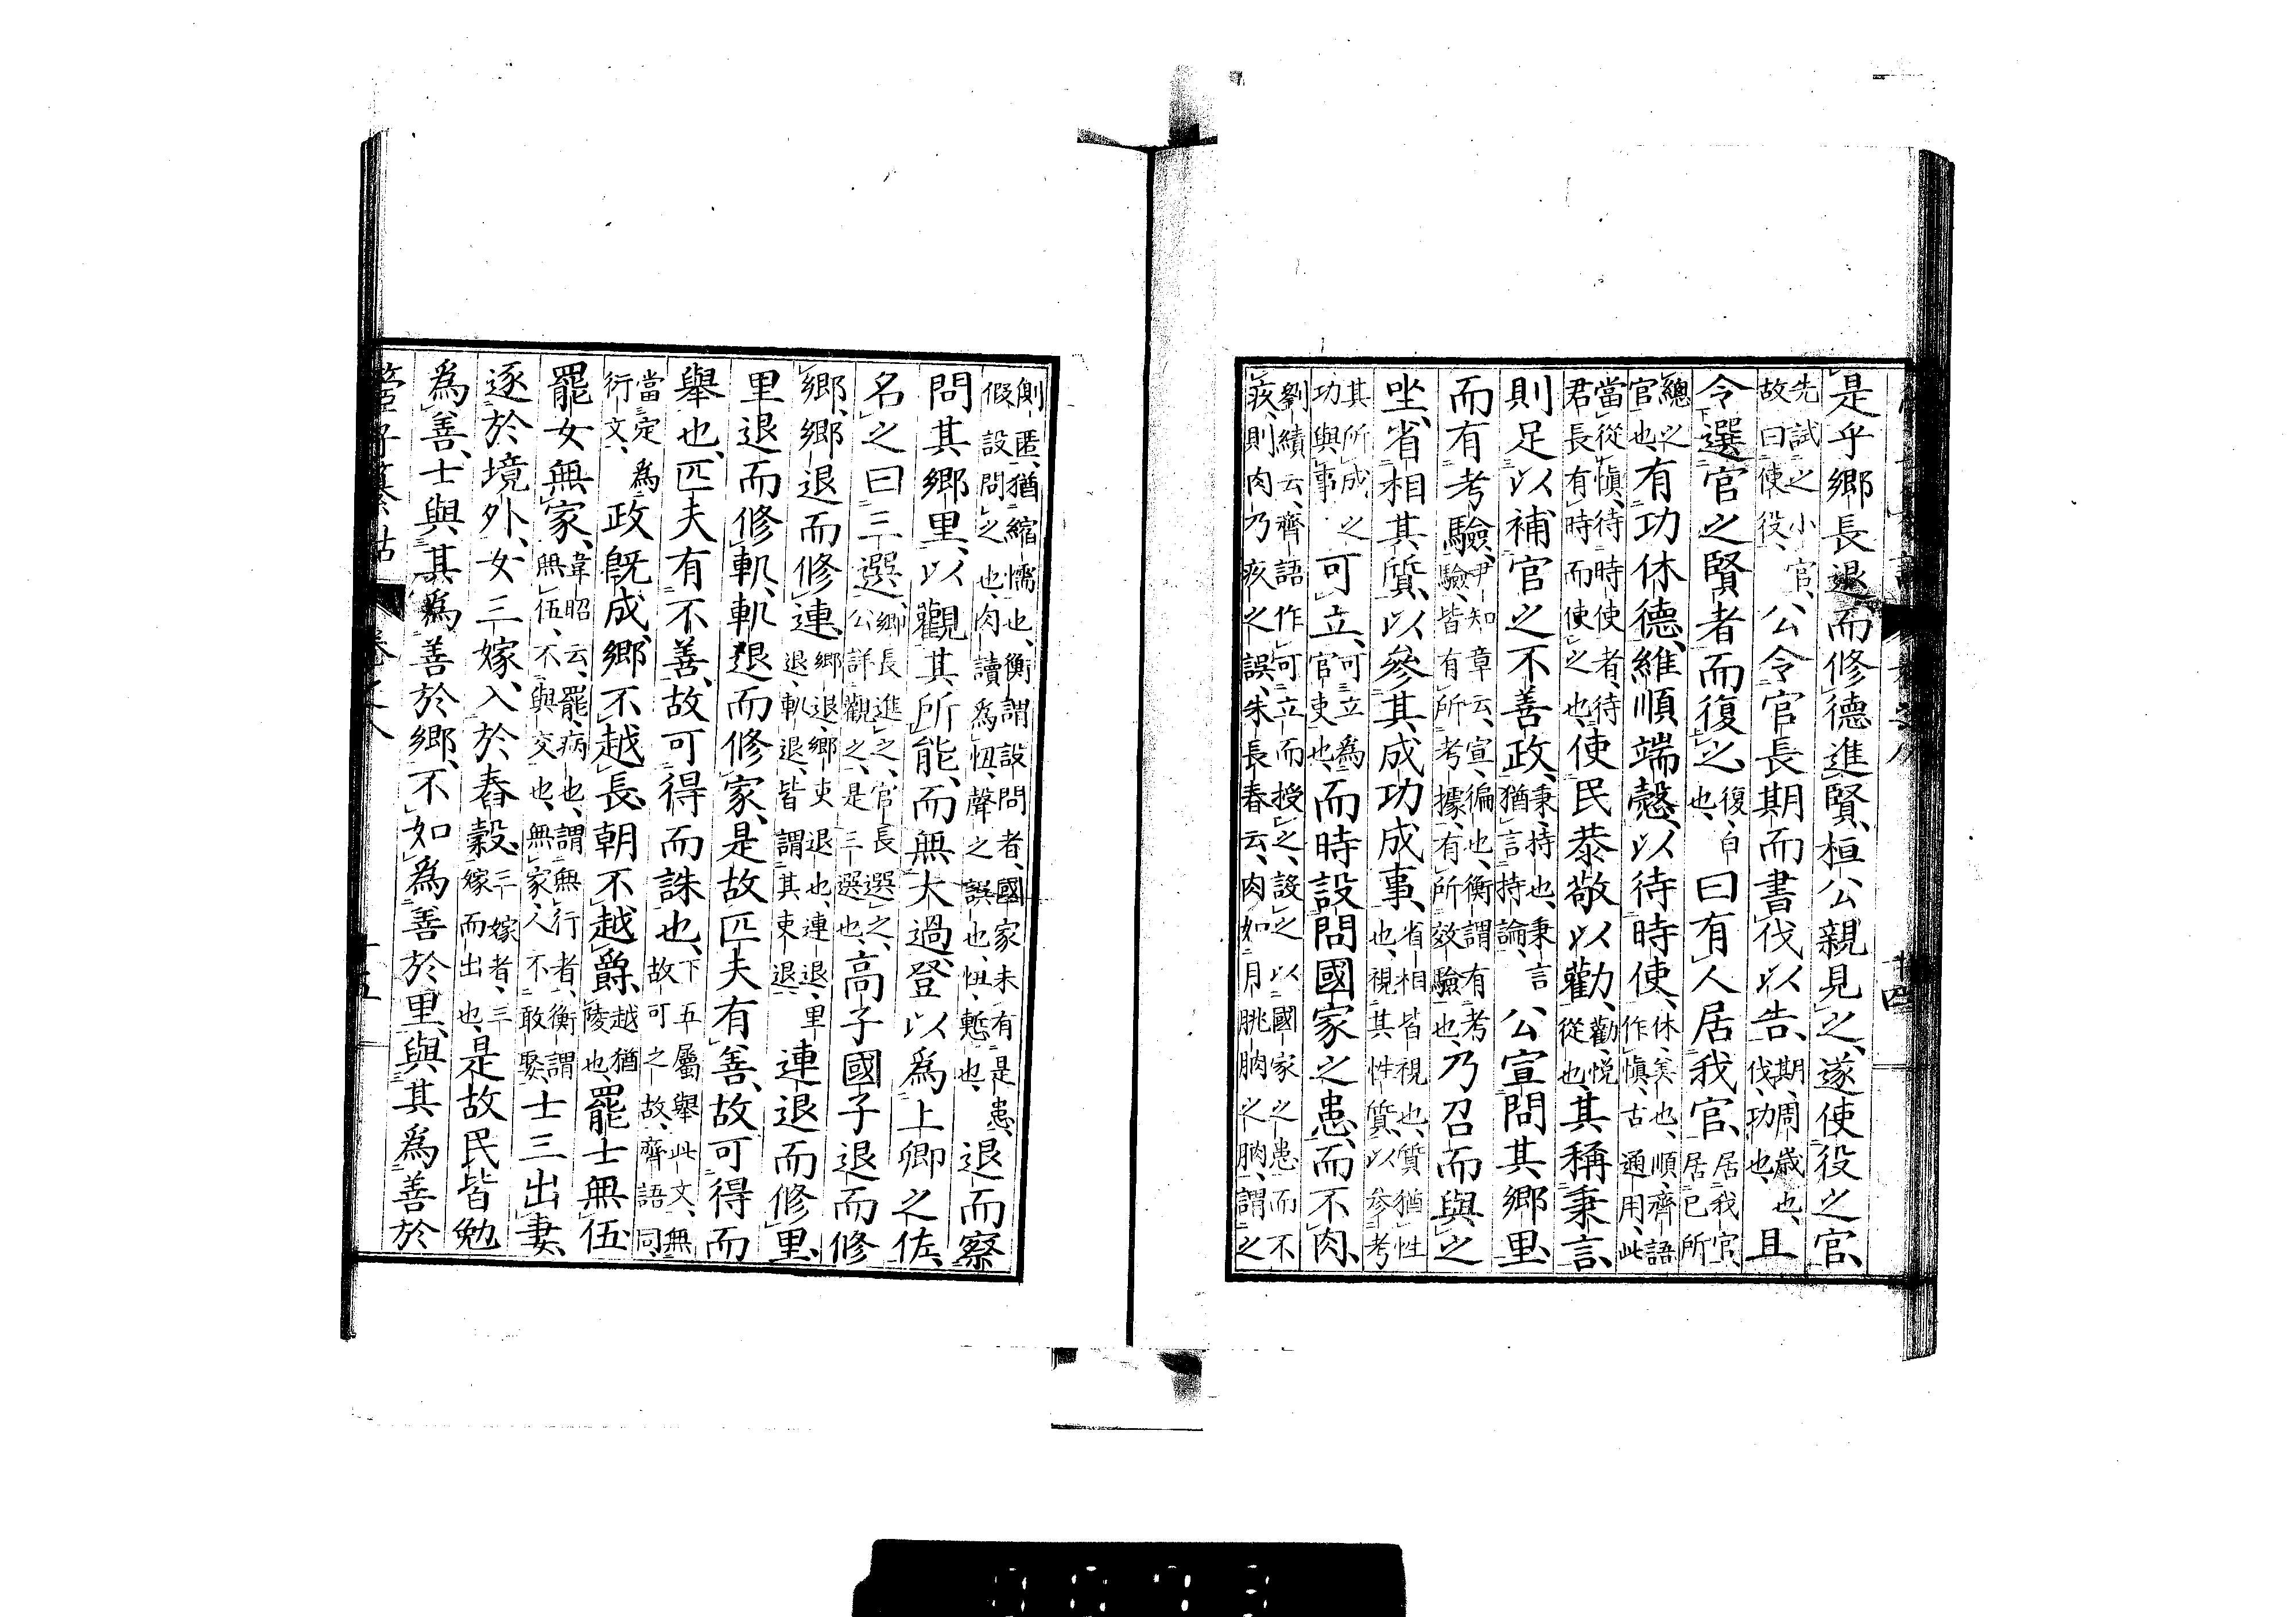 是乎鄉長退而修德進賢、桓公親見之、遂使役之官、
先試之小官、故曰使役、公令官長期而書伐以告、期、周歲也、伐、功也、且
令選官之賢者而復之、復、白也、曰有人居我官、居我官、居己所
總之官也、有功休德、維順端愨、以待時使、休、美也、順、齊語作愼、古通用、此
當從愼、待時使者、待君長有時而使之也、使民恭敬以勸、勸、悦從也、其稱秉言、
則足以補官之不善政、秉、持也、秉言猶言持論、公宣問其鄉里、
而有考驗、尹知章云、宣、徧也、衡謂有考驗、皆有所考據、有所效驗也、乃召而與之
坐、省相其質、以參其成功成事、省相皆視也、質猶性也、視其性質、以參考
其所成之功與事、可立、可立爲官吏也、而時設問國家之患、而不肉、
劉績云、齊語作可立而授之、設之以國家之患而不疚、則肉乃疚之誤、朱長春云、肉如月朓朒之朒、謂之
側匿、猶縮懦也、衡謂設問者、國家未有是患、假設問之也、肉讀爲忸、聲之誤也、忸、慙也、退而察
問其鄉里、以觀其所能、而無大過、登以爲上卿之佐、
名之曰三選、鄉長進之、官長選之、公詳觀之、是三選也、高子國子退而修
鄉、鄉退而修連、鄉退、鄉吏退也、連退、里退、軌退、皆謂其吏退、連退而修里、
里退而修軌、軌退而修家、是故匹夫有善、故可得而
舉也、匹夫有不善、故可得而誅也、下五屬舉此文、無故可之故、齊語同
當定爲行文、政既成、鄉不越長、朝不越爵、越猶陵也、罷士無伍、
罷女無家、韋昭云、罷、病也、謂無行者、衡謂無伍、不與交也、無家、人不敢娶、士三出妻、
逐於境外、女三嫁、入於舂穀、三嫁者、三嫁而出也、是故民皆勉
爲善、士與其爲善於鄉、不如爲善於里、與其爲善於